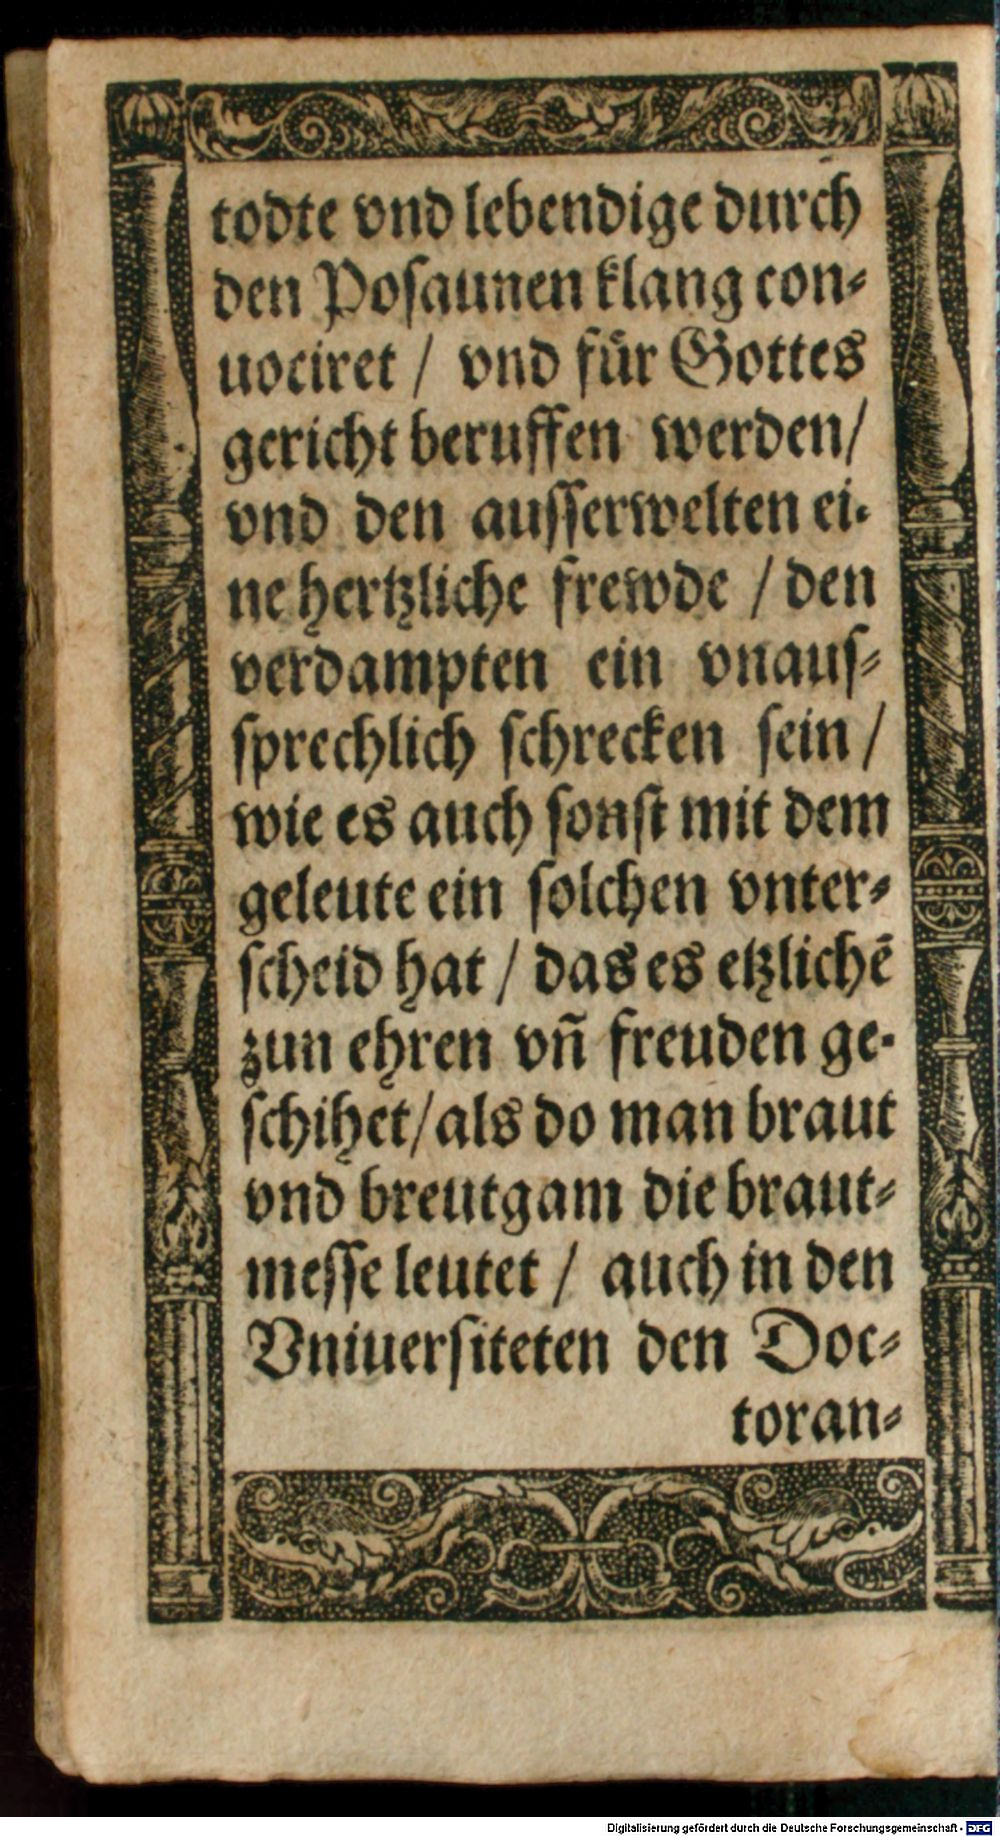 todte vnd lebendige durch
den Posaunen klang con-
uociret / vnd für Gottes
gericht beruffen werden/
vnd den ausserwelten ei-
ne hertzliche frewde / den
verdampten ein vnaus-
sprechlich schrecken sein /
wie es auch sonst mit dem
geleute ein solchen vnter-
scheid hat / das es etzlichē
zun ehren vñ freuden ge-
schihet/als do man braut
vnd breutgam die braut-
messe leutet / auch in den
Vniuersiteten den Doc-
toran-
Digitalisierung gefördert durch die Deutsche Forschungsgemeinschaft - DFG